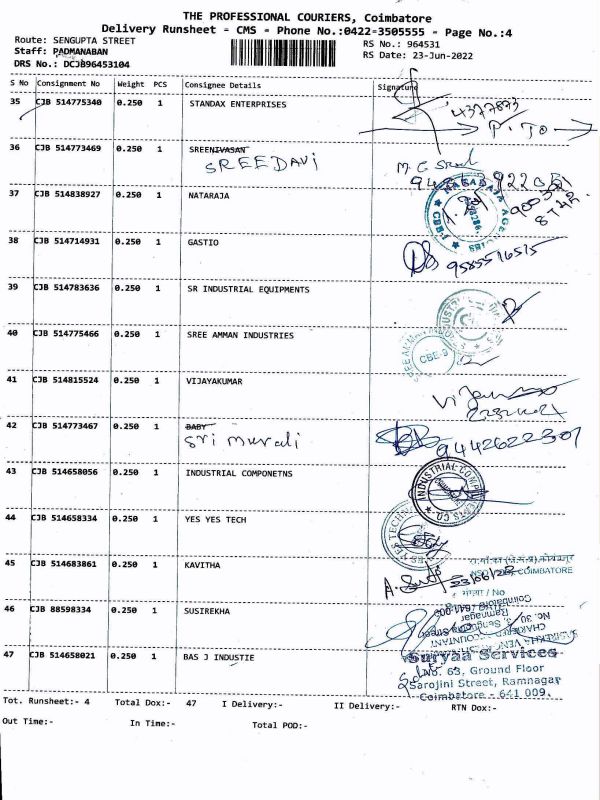 THE PROFESSIONAL COURIERS, Coimbatore
Delivery Runsheet - CMS - Phone No.:0422-3505555 - Page No.:4
Route: SENGUPTA STREET
RS No.: 964531
Staff: PADMANABAN
RS Date: 23-Jun-2022
DRS No.: DCJB96453104
S No Consignment No Weight PCS Consignee Details Signature
35 CJB 514775340 0.250 1 STANDAX ENTERPRISES
4377873
P.TO
36 CJB 514773469 0.250 1 SREENIVASAN
SREEDAVI
37 CJB 514838927 0.250 1 NATARAJA
38 CJB 514714931 0.250 1 GASTIO
9585516515
39 CJB 514783636 0.250 1 SR INDUSTRIAL EQUIPMENTS
40 CJB 514775466 0.250 1 SREE AMMAN INDUSTRIES
CBE-9
41 CJB 514815524 0.250 1 VIJAYAKUMAR
42 CJB 514773467 0.250 1 BABY
Sri murali
9442622307
43 CJB 514658056 0.250 1 INDUSTRIAL COMPONETNS
44 CJB 514658334 0.250 1 YES YES TECH
YES YES TECH
45 CJB 514683861 0.250 1 KAVITHA
COIMBATORE
23/06/22
46 CJB 88598334 0.250 1 SUSIREKHA
47 CJB 514658021 0.250 1 BAS J INDUSTIE
Suryaa Services
No. 63, Ground Floor
Sarojini Street, Ramnagar
Coimbatore - 641 009.
Tot. Runsheet:- 4 Total Dox:- 47 I Delivery:- II Delivery:- RTN Dox:-
Out Time:- In Time:- Total POD:-